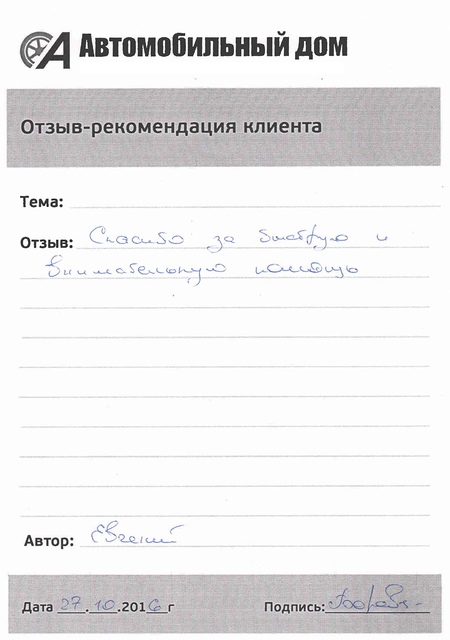 Автомобильный дом
Отзыв-рекомендация клиента
Тема:
Отзыв: Спасибо за быструю и
внимательную помощь
Автор: Евгений
Дата 27.10.2016 г Подпись: